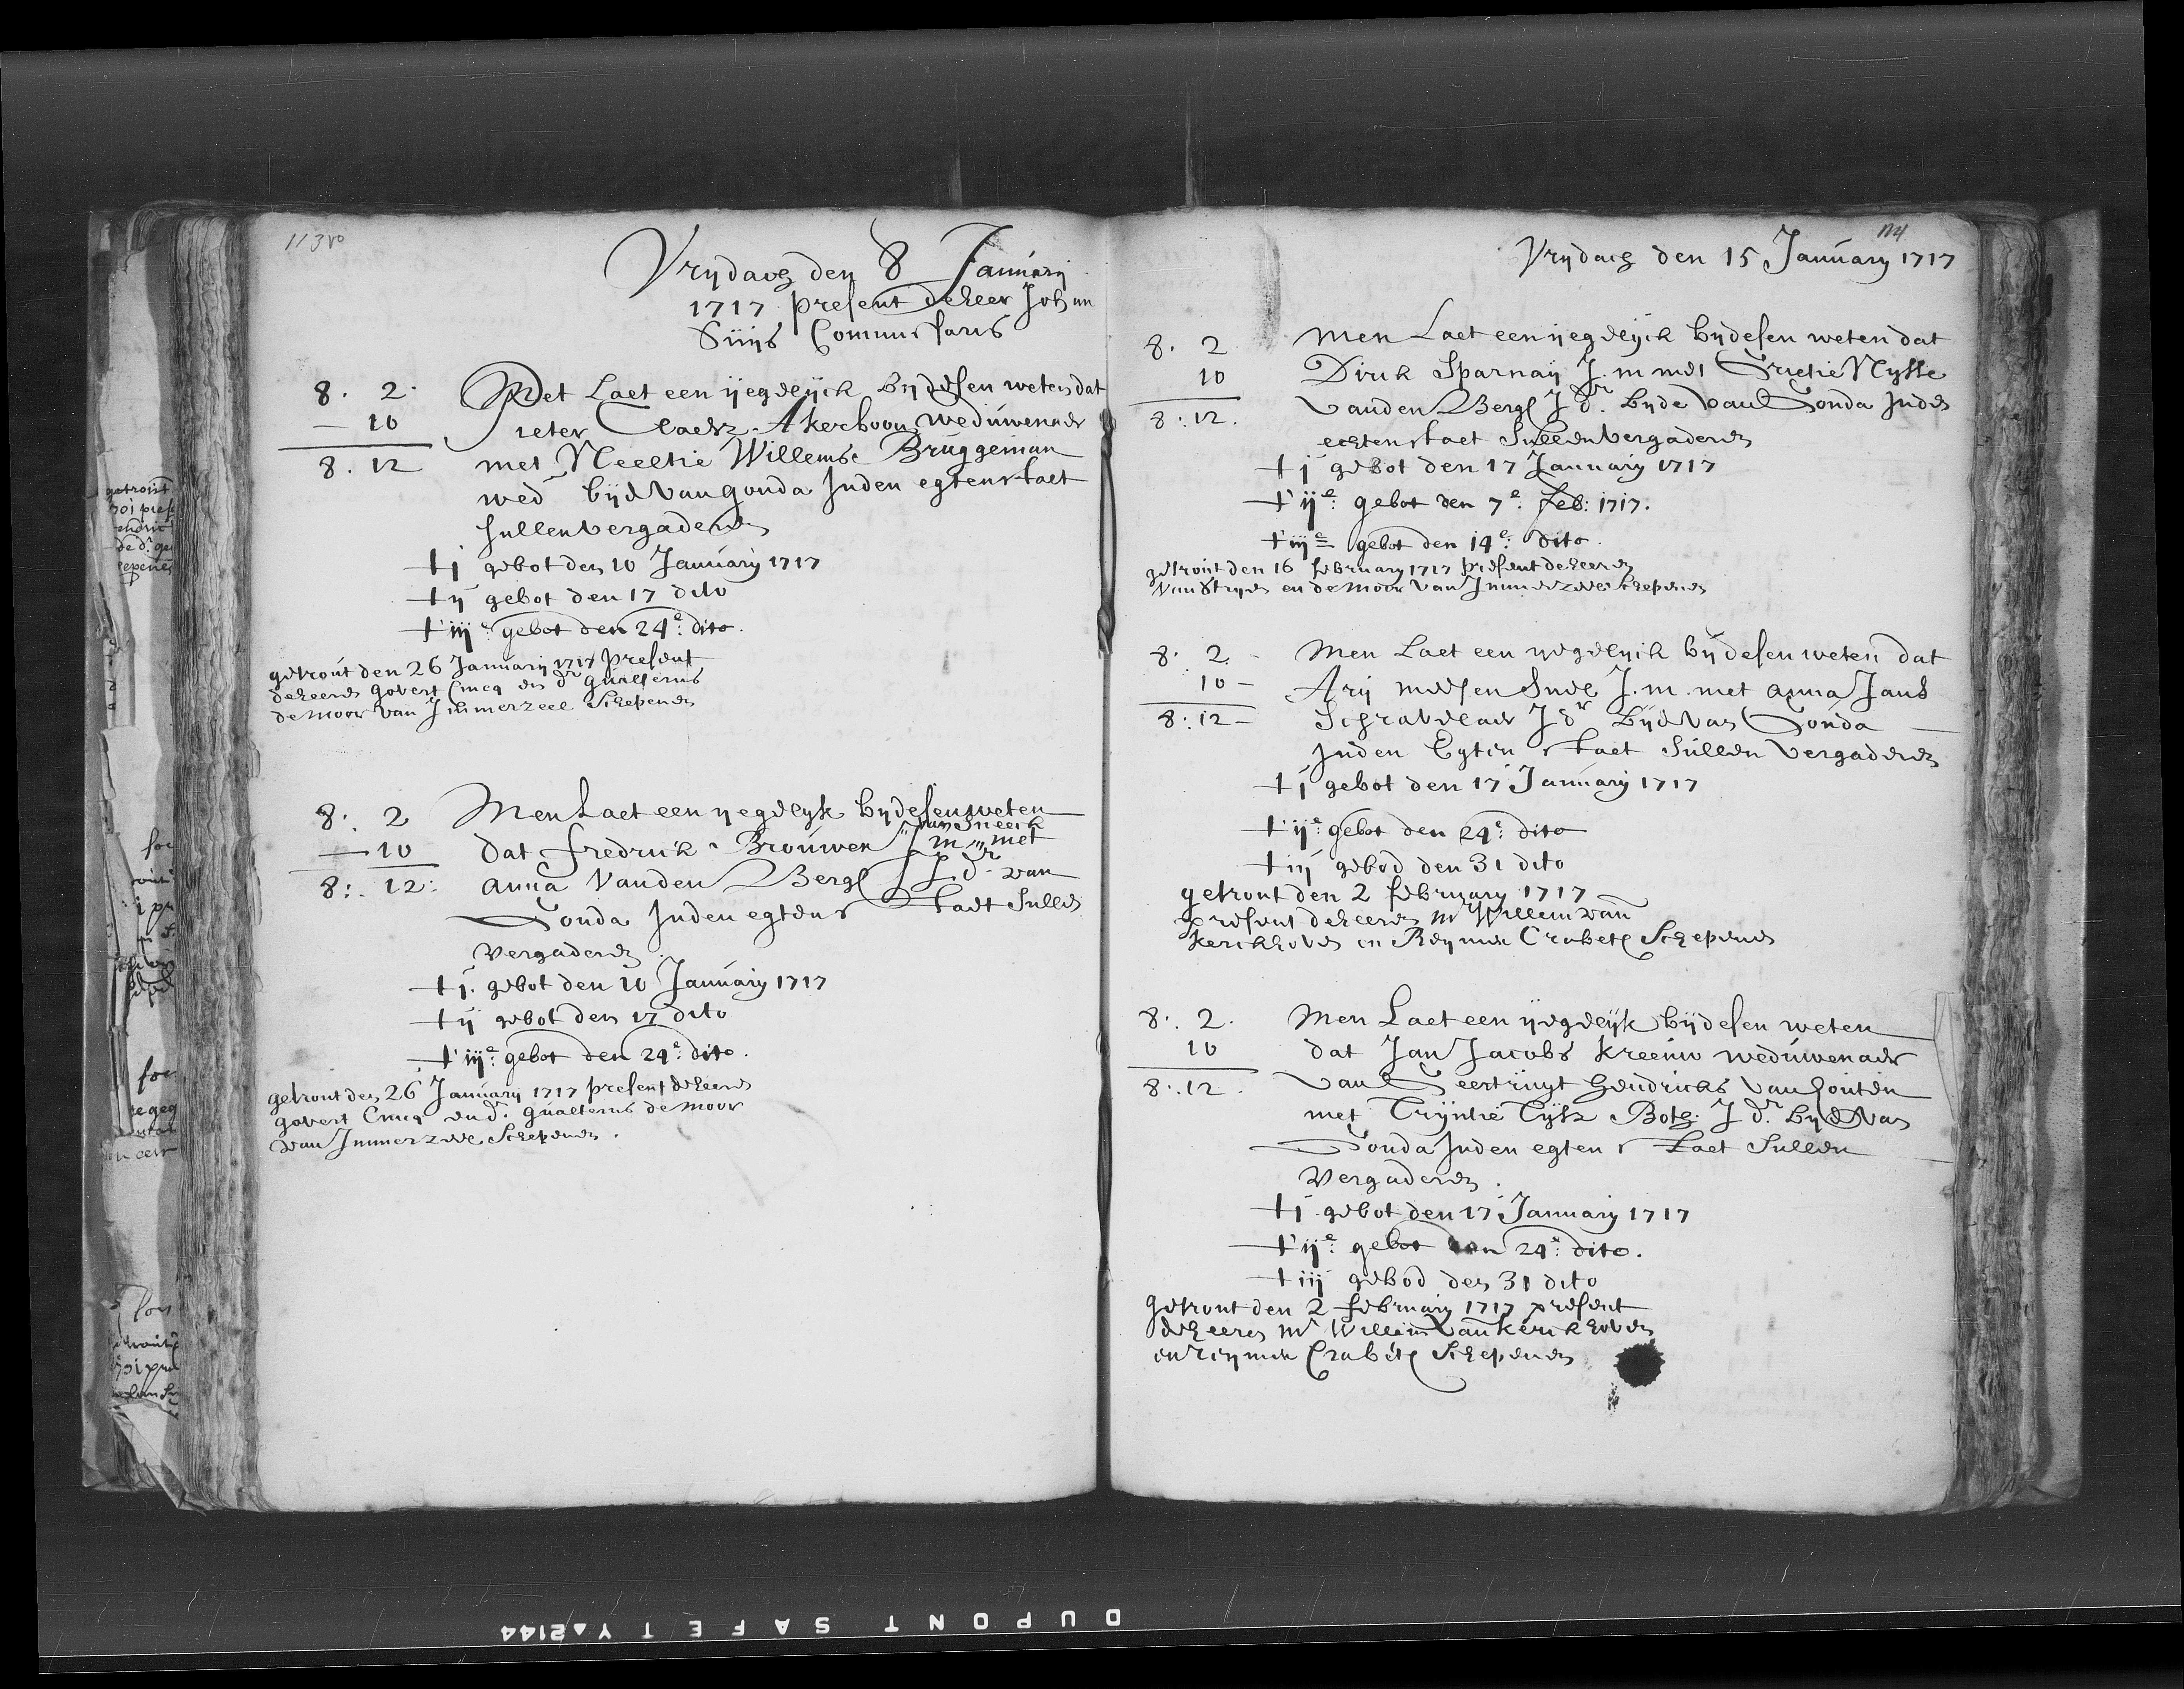 113vo
Vrydag den 8 January
1717 present de heer Johan
Suijs Commissaris
8. 2.
10
8. 12
Met Laet een ijegelijck bij desen weten dat
Pieter Claesz Akerboom weduwenaer
met Neeltie Willemse Bruggeman
wed bijde van gouda Inden egten staet
sullen vergaderen
+ j gebot den 10 January 1717
+ ij gebot den 17 dito
+ iije gebot den 24e: dito.
getrout den 26 January 1717 present
de heeren govert Cincq en dr gualterus
de moor van Immerzeel Schepenen
8. 2
10
8. 12:
Men Laet een ijegelyk bij desen weten
van Sneeck
dat fredrick Brouwer J m met
anna vanden Bergh J dr van
Gouda Inden egten staet sullen
vergaderen
+ j. gebot den 10 January 1717
+ ij gebot den 17 dito
+ iije: gebot den 24e: dito.
getrout den 26 January 1717 present de heeren
govert Cincq en dr. gualterus de moor
van Immerzeel Schepenen.
114
Vrydag den 15 January 1717
8. 2
10
8. 12.
Men Laet een ijegelijck bijdesen weten dat
Dirck Sparnaij J. m met Grietie Nysse
vanden Bergh J dr. bijde van Gouda Inden
echten staet sullen vergaderen
+ j gebot den 17 January 1717
+ ije: gebot den 7e: Feb: 1717.
+ iije gebot den 14e: dito.
getrout den 16 february 1717 present de heeren
van Stryen en de moor van Immerzeel Schepenen
8. 2.
10
8. 12
Men Laet een ijegelijck bij desen weten dat
Arij meesen Snel J. m. met anna Jans
Schravelaer J dr bijde van Gouda
Inden Egten staet sullen vergaderen
+ j gebot den 17 January 1717
+ ije: gebot den 24e: dito
+ iij gebod den 31 dito
getrout den 2 february 1717
present de heeren mr Willem van
kerckhoven en Reynier Crabeth Schepenen
8. 2.
10
8. 12.
Men Laet een ijegelijk bijdesen weten
dat Jan Jacobs kreeuw weduwenaer
van Geertruyt hendricks van houten
met Tryntie Tyssz Both. J dr. bijde van
Gouda Inden egten staet sullen
vergaderen.
+ j gebot den 17 January 1717
+ ije: gebot den 24e: dito.
+ iij gebod den 31 dito
getrout den 2 february 1717 present
de heeren mr Willem van kerckhoven
en reynier Crabeth Schepenen
DUPONT SAFETY▲2144